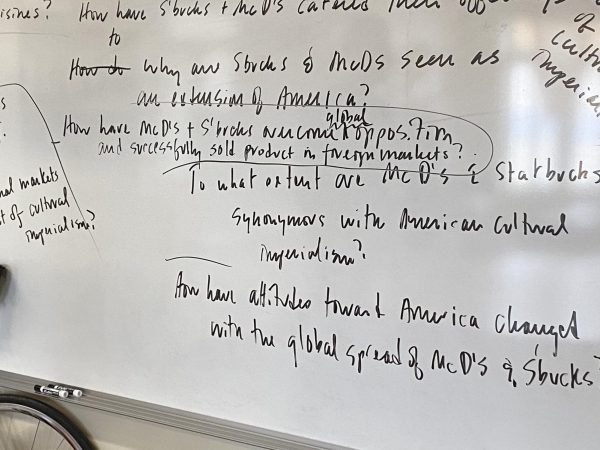 isines? How have S'bucks + McD's catered their off
to of
cultural
imperialism
How do Why are Sbucks & McDs seen as
an extension of America?
global
How have McD's + S'bucks overcome opposition
and successfully sold product in foreign markets?
To what extent are McD's & Starbucks
nal markets
t of cultural
imperialism?
synonymous with American cultural
imperialism?
How have attitudes toward America changed
with the global spread of McD's & Sbucks?